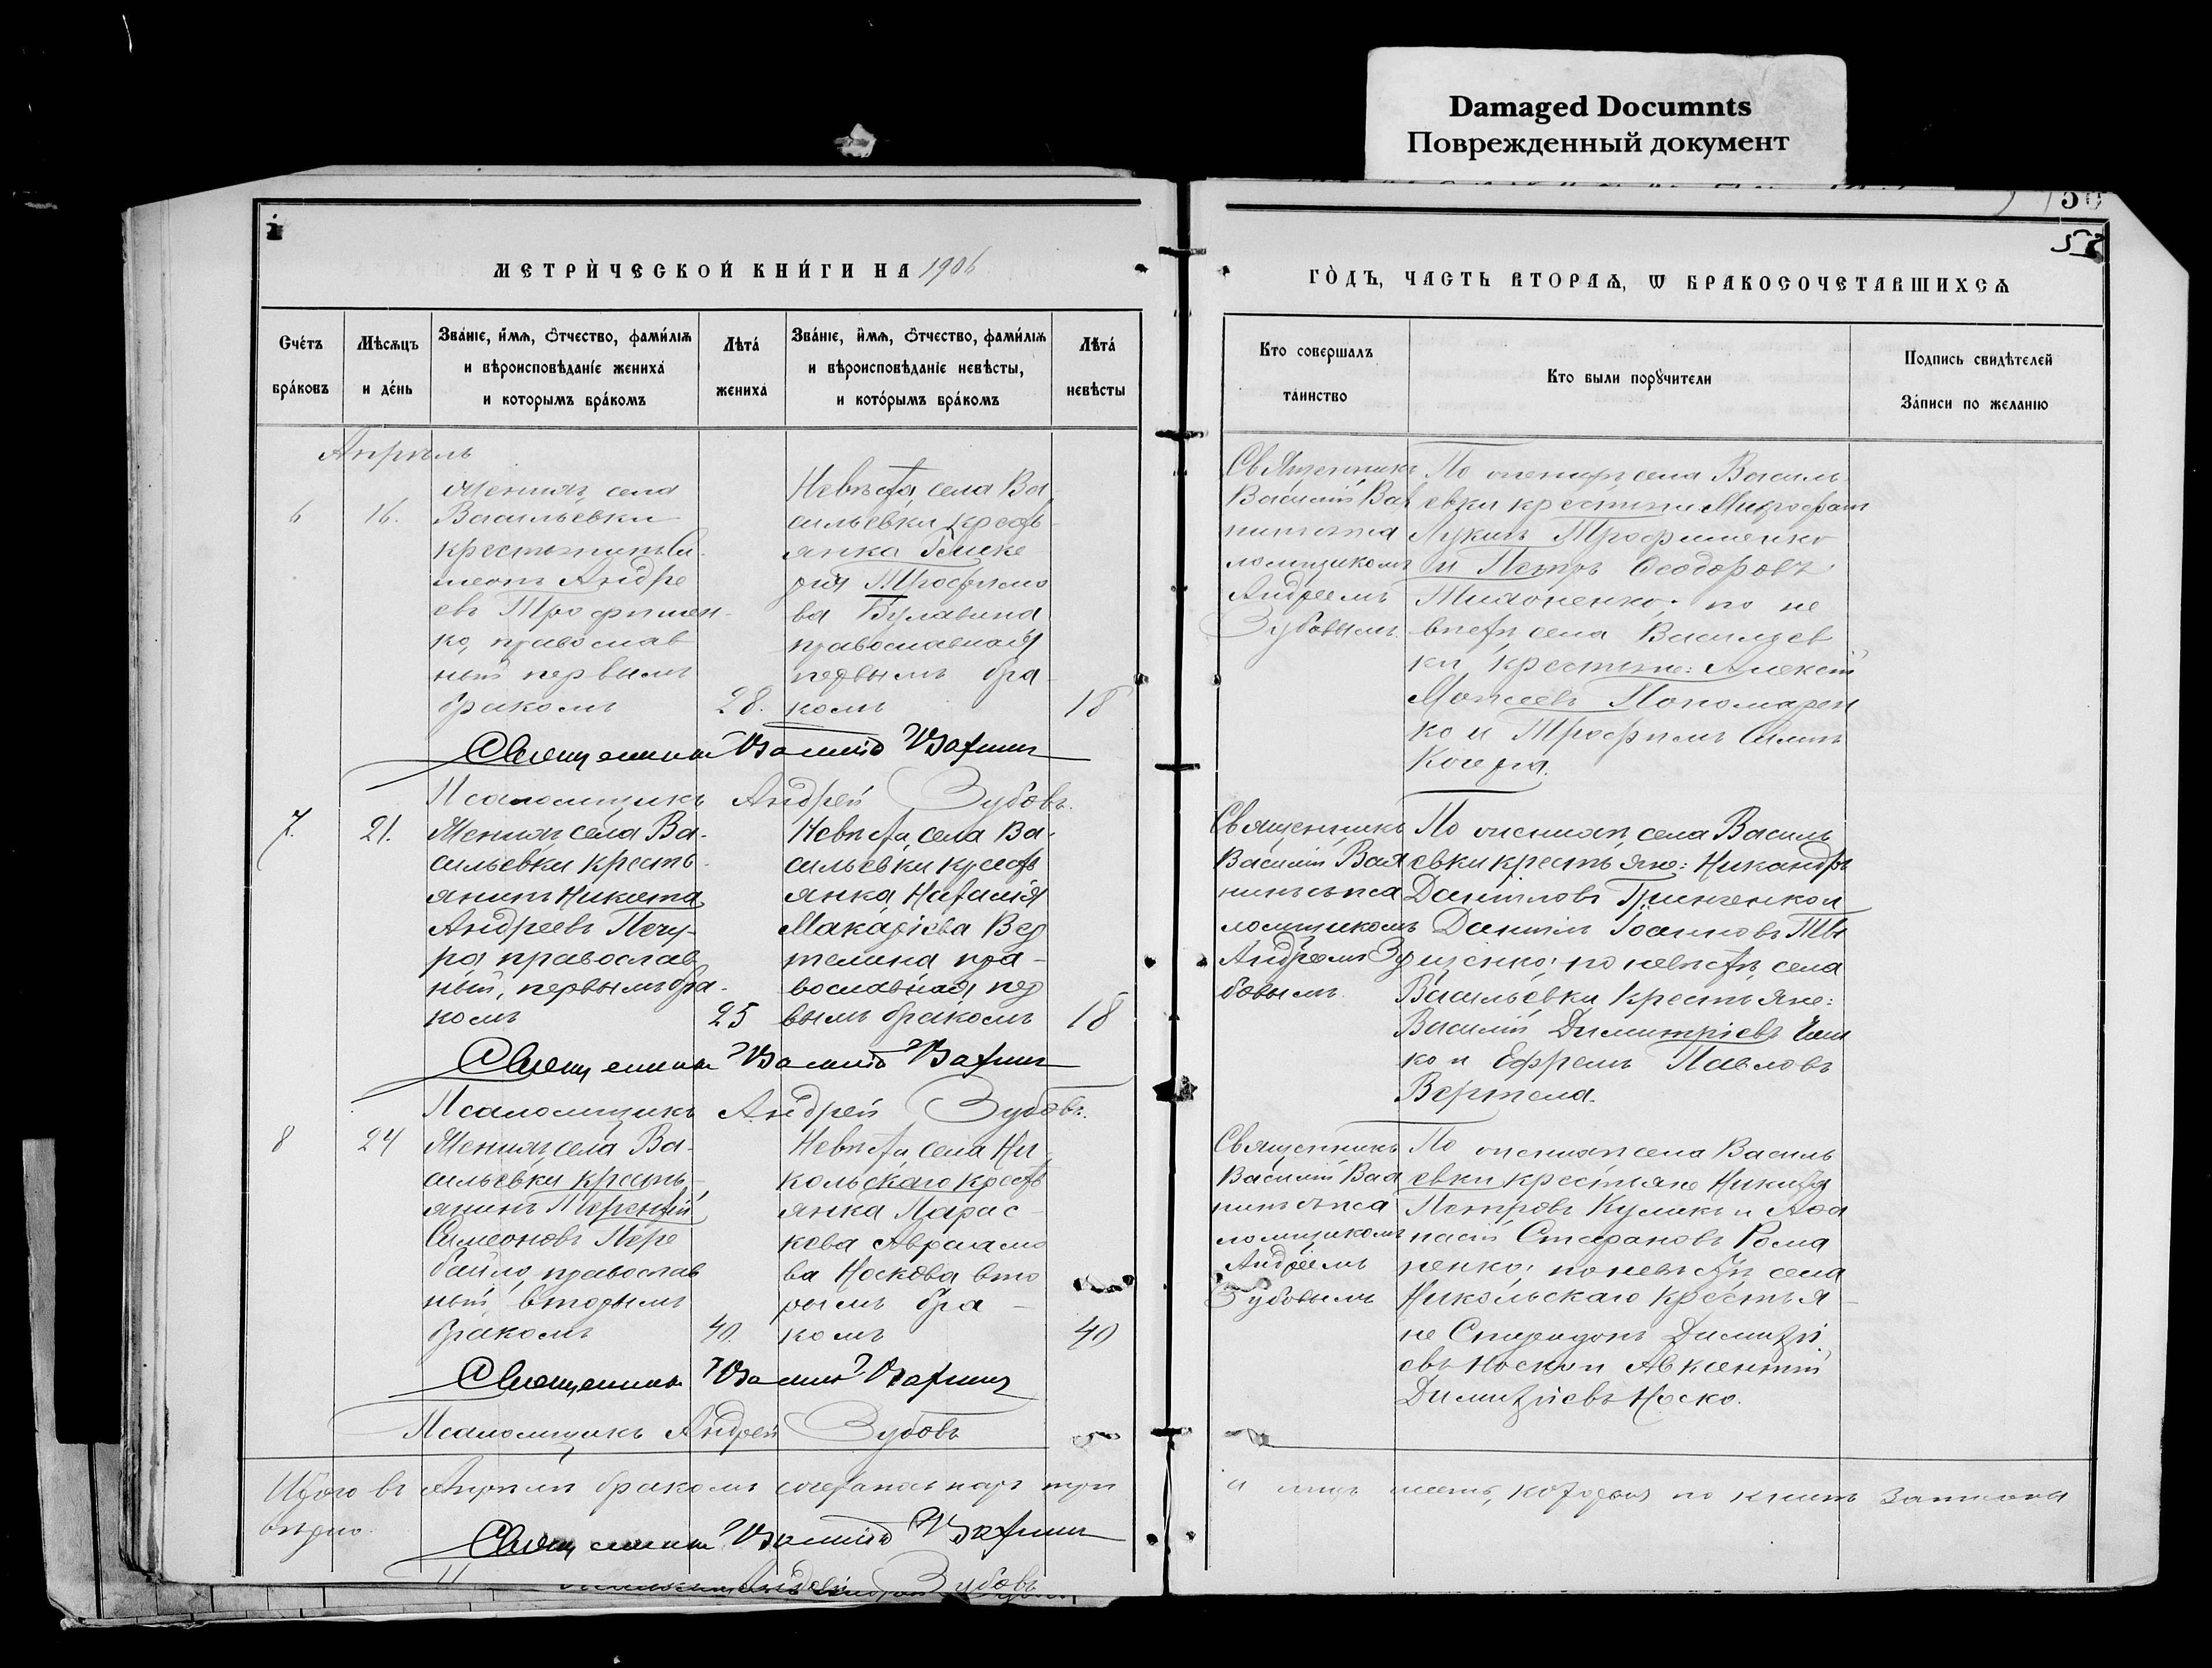 Damaged Documnts
Поврежденный документ
МЕТРИ́ЧЕСКОЙ КНИ́ГИ НА 1906
ГО́ДЪ, ЧАСТЬ ВТОРАѦ, Ѡ БРАКОСОЧЕТАВШИХСѦ
Сче́тъ бра́ковъ
Мѣсѧцъ и де́нь
Зва́нїе, и́мѧ, ѻ҆́тчество, фами́лїѧ
и вѣроисповѣданїе жениха̀
и которымъ бра́комъ
Лѣта̀ жениха̀
Зва́нїе, и́мѧ, ѻ҆́тчество, фами́лїѧ
и вѣроисповѣданїе невѣ́сты,
и кото́рымъ бра́комъ
Лѣта̀ невѣсты
Кто совершалъ
та́инство
Кто были порꙋчители
Подпись свидѣтелей
За́писи по желанію
Апрѣль
6
16.
Женихъ села
Васильевки
крестьянинъ Си-
меонъ Андре
евъ Трофимен-
ко, православ
ный первымъ
бракомъ
28.
Невѣста, села Ва
сильевки крест-
янка Глике
рія Трофимо
ва Булавина
православная
первымъ бра-
комъ
18
Священникъ
Василій
ломщикомъ
Андреемъ
Зубовымъ.
По женихѣ села Василь
евки крестьяне Митрофанъ
Лукинъ Трофименко
и Петръ Ѳеодоровъ
по не
вѣстѣ села Васильев
ки, крестьяне: Алексій
Моисеевъ Пономарен
ко и Трофимъ
Священникъ Василій
Псаломщикъ Андрей Зубовъ.
7.
21.
Женихъ, села Ва-
сильевки кресть-
янинъ Никита
Андреевъ Печу-
ра православ
ный, первымъ бра-
комъ
25
Невѣста, села Ва-
сильевки крест
янка Наталія
Макаріева Вер
телина пра-
вославная, пер
вымъ бракомъ
18
Священникъ
Василій
ломщикомъ
Андреемъ Зу
бовымъ
По женихѣ, села Василь
евки крестьяне: Никандръ
Даніиловъ Гринченко и
Даніилъ Іоанновъ Ти
щенко; по невѣстѣ, села
Васильевки крестьяне:
Василій Димитріевъ
ко и Ефремъ Павловъ
Вертела.
Священникъ Василій
Псаломщикъ Андрей Зубовъ.
8
24
Женихъ, села Ва-
сильевки кресть-
янинъ Терентій
Симеоновъ Пере
байло, православ
ный, вторымъ
бракомъ
40.
Невѣста, села Ни
кольскаго крест
янка Парас-
кева Авраамо
ва Носкова вто
рымъ бра-
комъ
40
Священникъ
Василій
ломщикомъ
Андреемъ
Зубовымъ
По женихѣ села Василь
евки крестьяне Никита
Петровъ Куликъ и Аѳа
насій Стефановъ Рома
ненко; по невѣстѣ, села
Никольскаго крестья-
не Спиридонъ Димитрі
евъ Носко и Авксентій
Димитріевъ Носко.
Священникъ Василій
Псаломщикъ Андрей Зубовъ
Итого въ Апрѣлѣ бракомъ сочеталось паръ три
а лицъ шесть, которыя по книгѣ записаны
вѣрно.
Священникъ Василій
Андрей Зубовъ